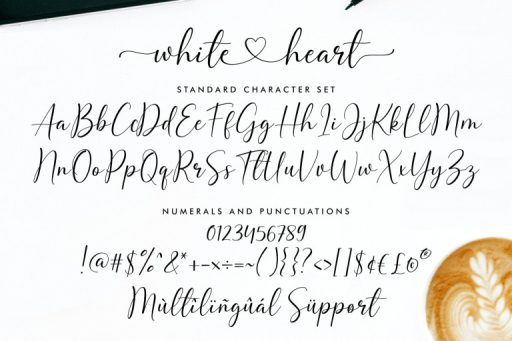 white heart
STANDARD CHARACTER SET
AaBbCcDdEeFfGgHhIiJjKkLlMm
NnOoPpQqRrSsTtUuVvWwXxYyZz
NUMERALS AND PUNCTUATIONS
0123456789
!@#$%^&*+-x÷=~(){}?<>[]$¢£©®
Mùltîlïñgûál Süppört